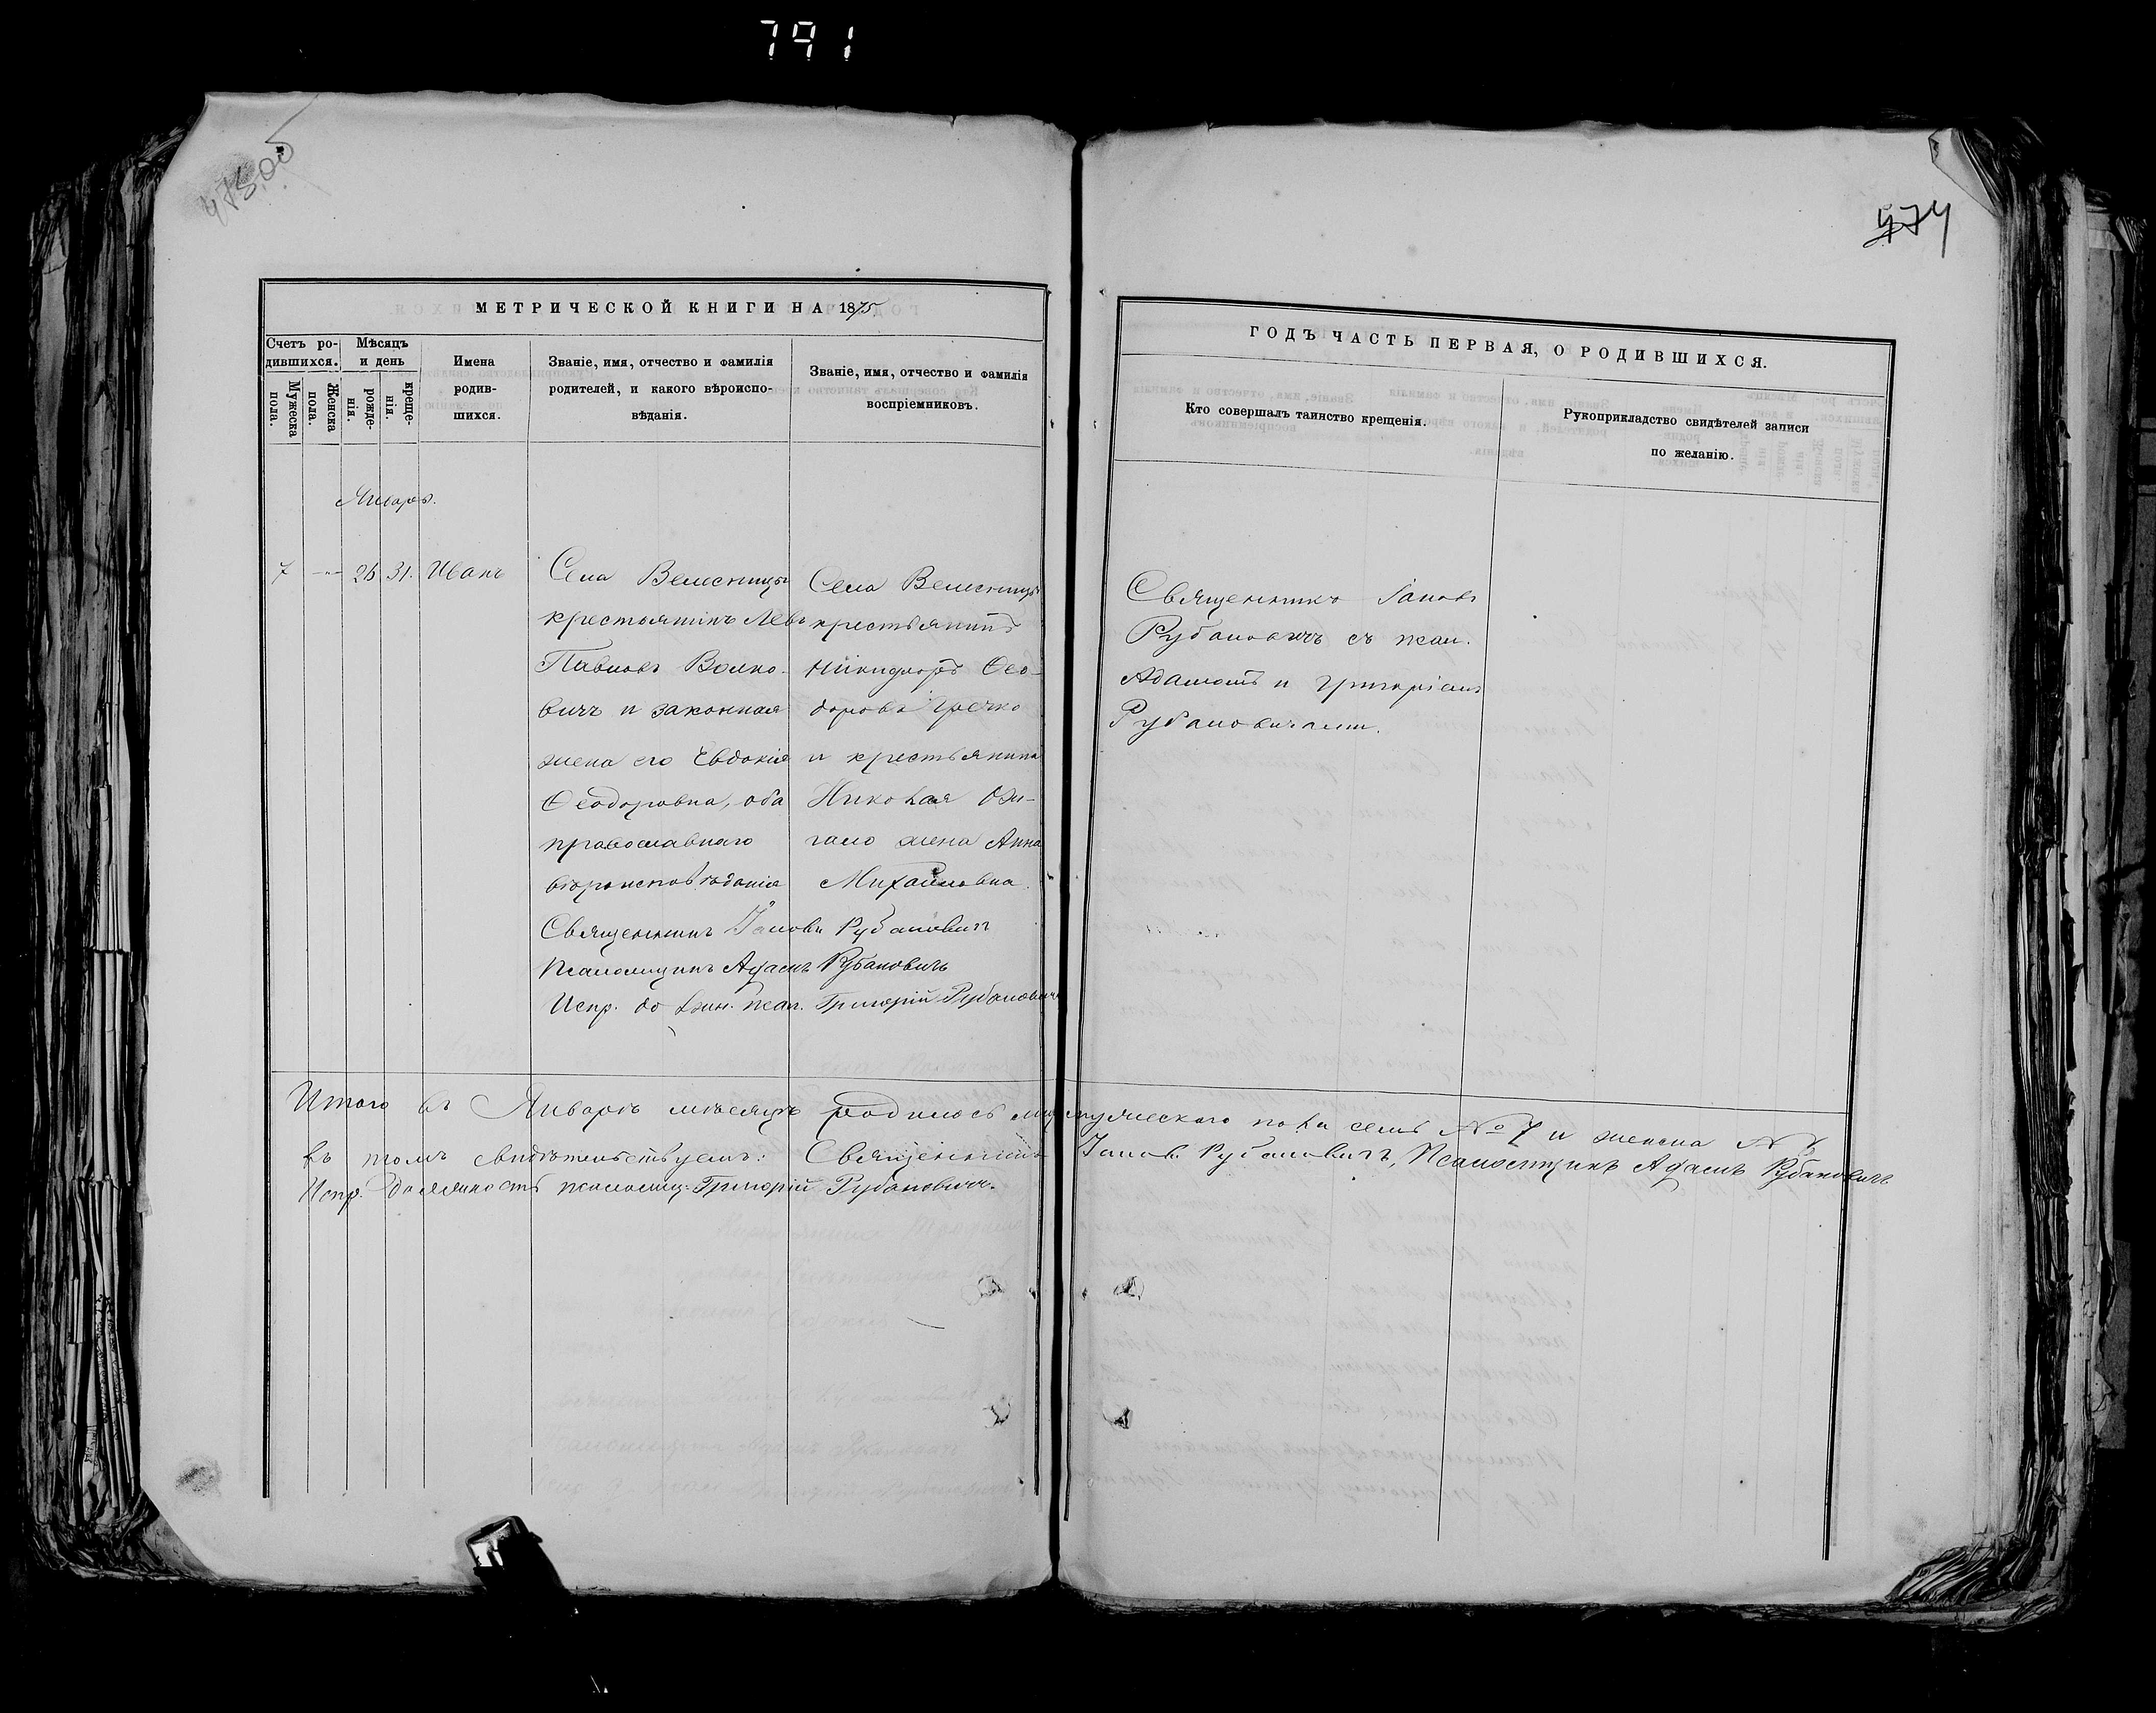 791
474
МЕТРИЧЕСКОЙ КНИГИ НА 1875
Счетъ родившихся.
Мужеска пола.
Женска пола.
Мѣсяцъ и день
рожденія.
крещенія.
Имена
родив-
шихся.
Званіе, имя, отчество и фамилія
родителей, и какого вѣроиспо-
вѣданія.
Званіе, имя, отчество и фамилія
воспріемниковъ.
Январь.
7 — 26 31. Иванъ
Села Велесницы
крестьянинъ Левъ
Павловъ Волко-
вичъ и законная
жена его Евдокія
Ѳеодоровна, оба
православнаго
вѣроисповѣданія
Села Велесницы
крестьянинъ
Никифоръ Ѳео-
доровъ Гречко
и крестьянина
Николая
жена Анна
Михайловна.
Священникъ Іаковъ Рубановичъ
Псаломщикъ Адамъ Рубановичъ
Испр. долж. псал. Григорій Рубановичъ
Итого въ Январѣ мѣсяцѣ родилось мужескаго пола семь № 7 и женска №
въ томъ свидѣтельствуемъ: Священникъ Іаковъ Рубановичъ, Псаломщикъ Адамъ Рубановичъ
Испр. должность псаломщ. Григорій Рубановичъ.
ГОДЪ ЧАСТЬ ПЕРВАЯ, О РОДИВШИХСЯ.
Кто совершалъ таинство крещенія.
Рукоприкладство свидѣтелей записи
по желанію.
Священникъ Іаковъ
Рубановичъ съ псал.
Адамомъ и Григоріемъ
Рубановичами.